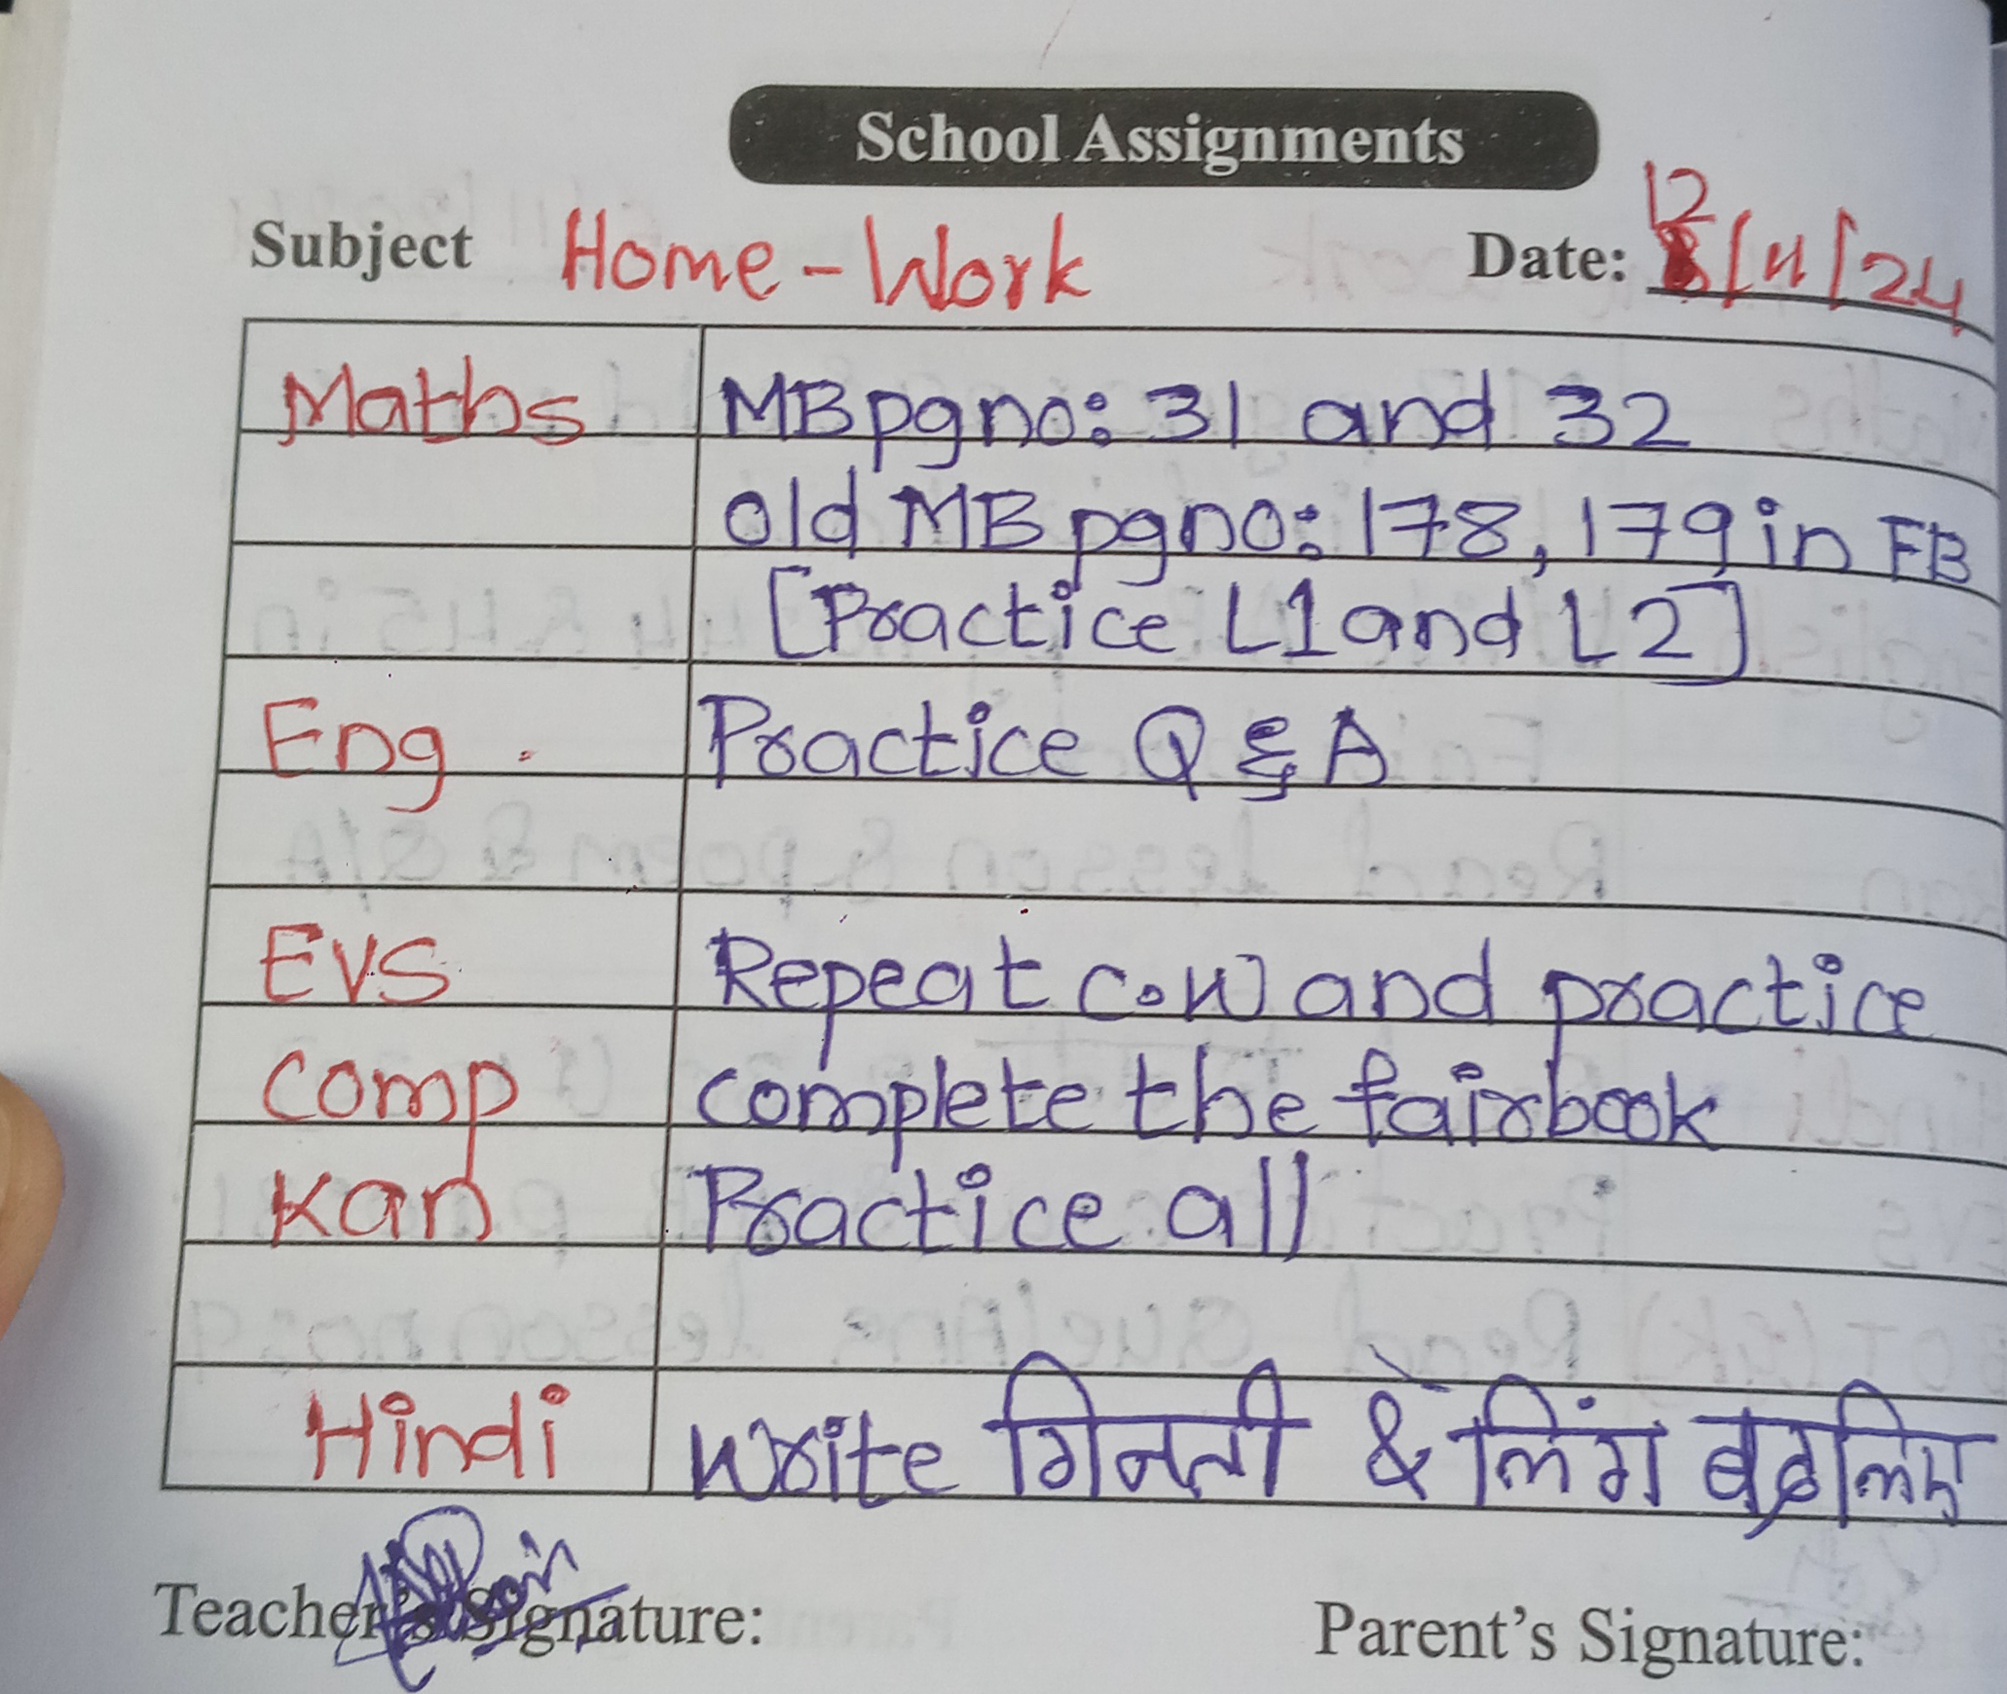 School Assignments
Subject Home-Work Date: 12/11/24
Maths MB pg no: 31 and 32
old MB pg no: 178, 179 in FB
[Practice L1 and L2]
Eng. Practice Q & A
EVS Repeat C.W and practice
Comp complete the fairbook
Kan Practice all
Hindi Write गिनती & लिंग बदलिए
Teacher's Signature:
Parent's Signature: